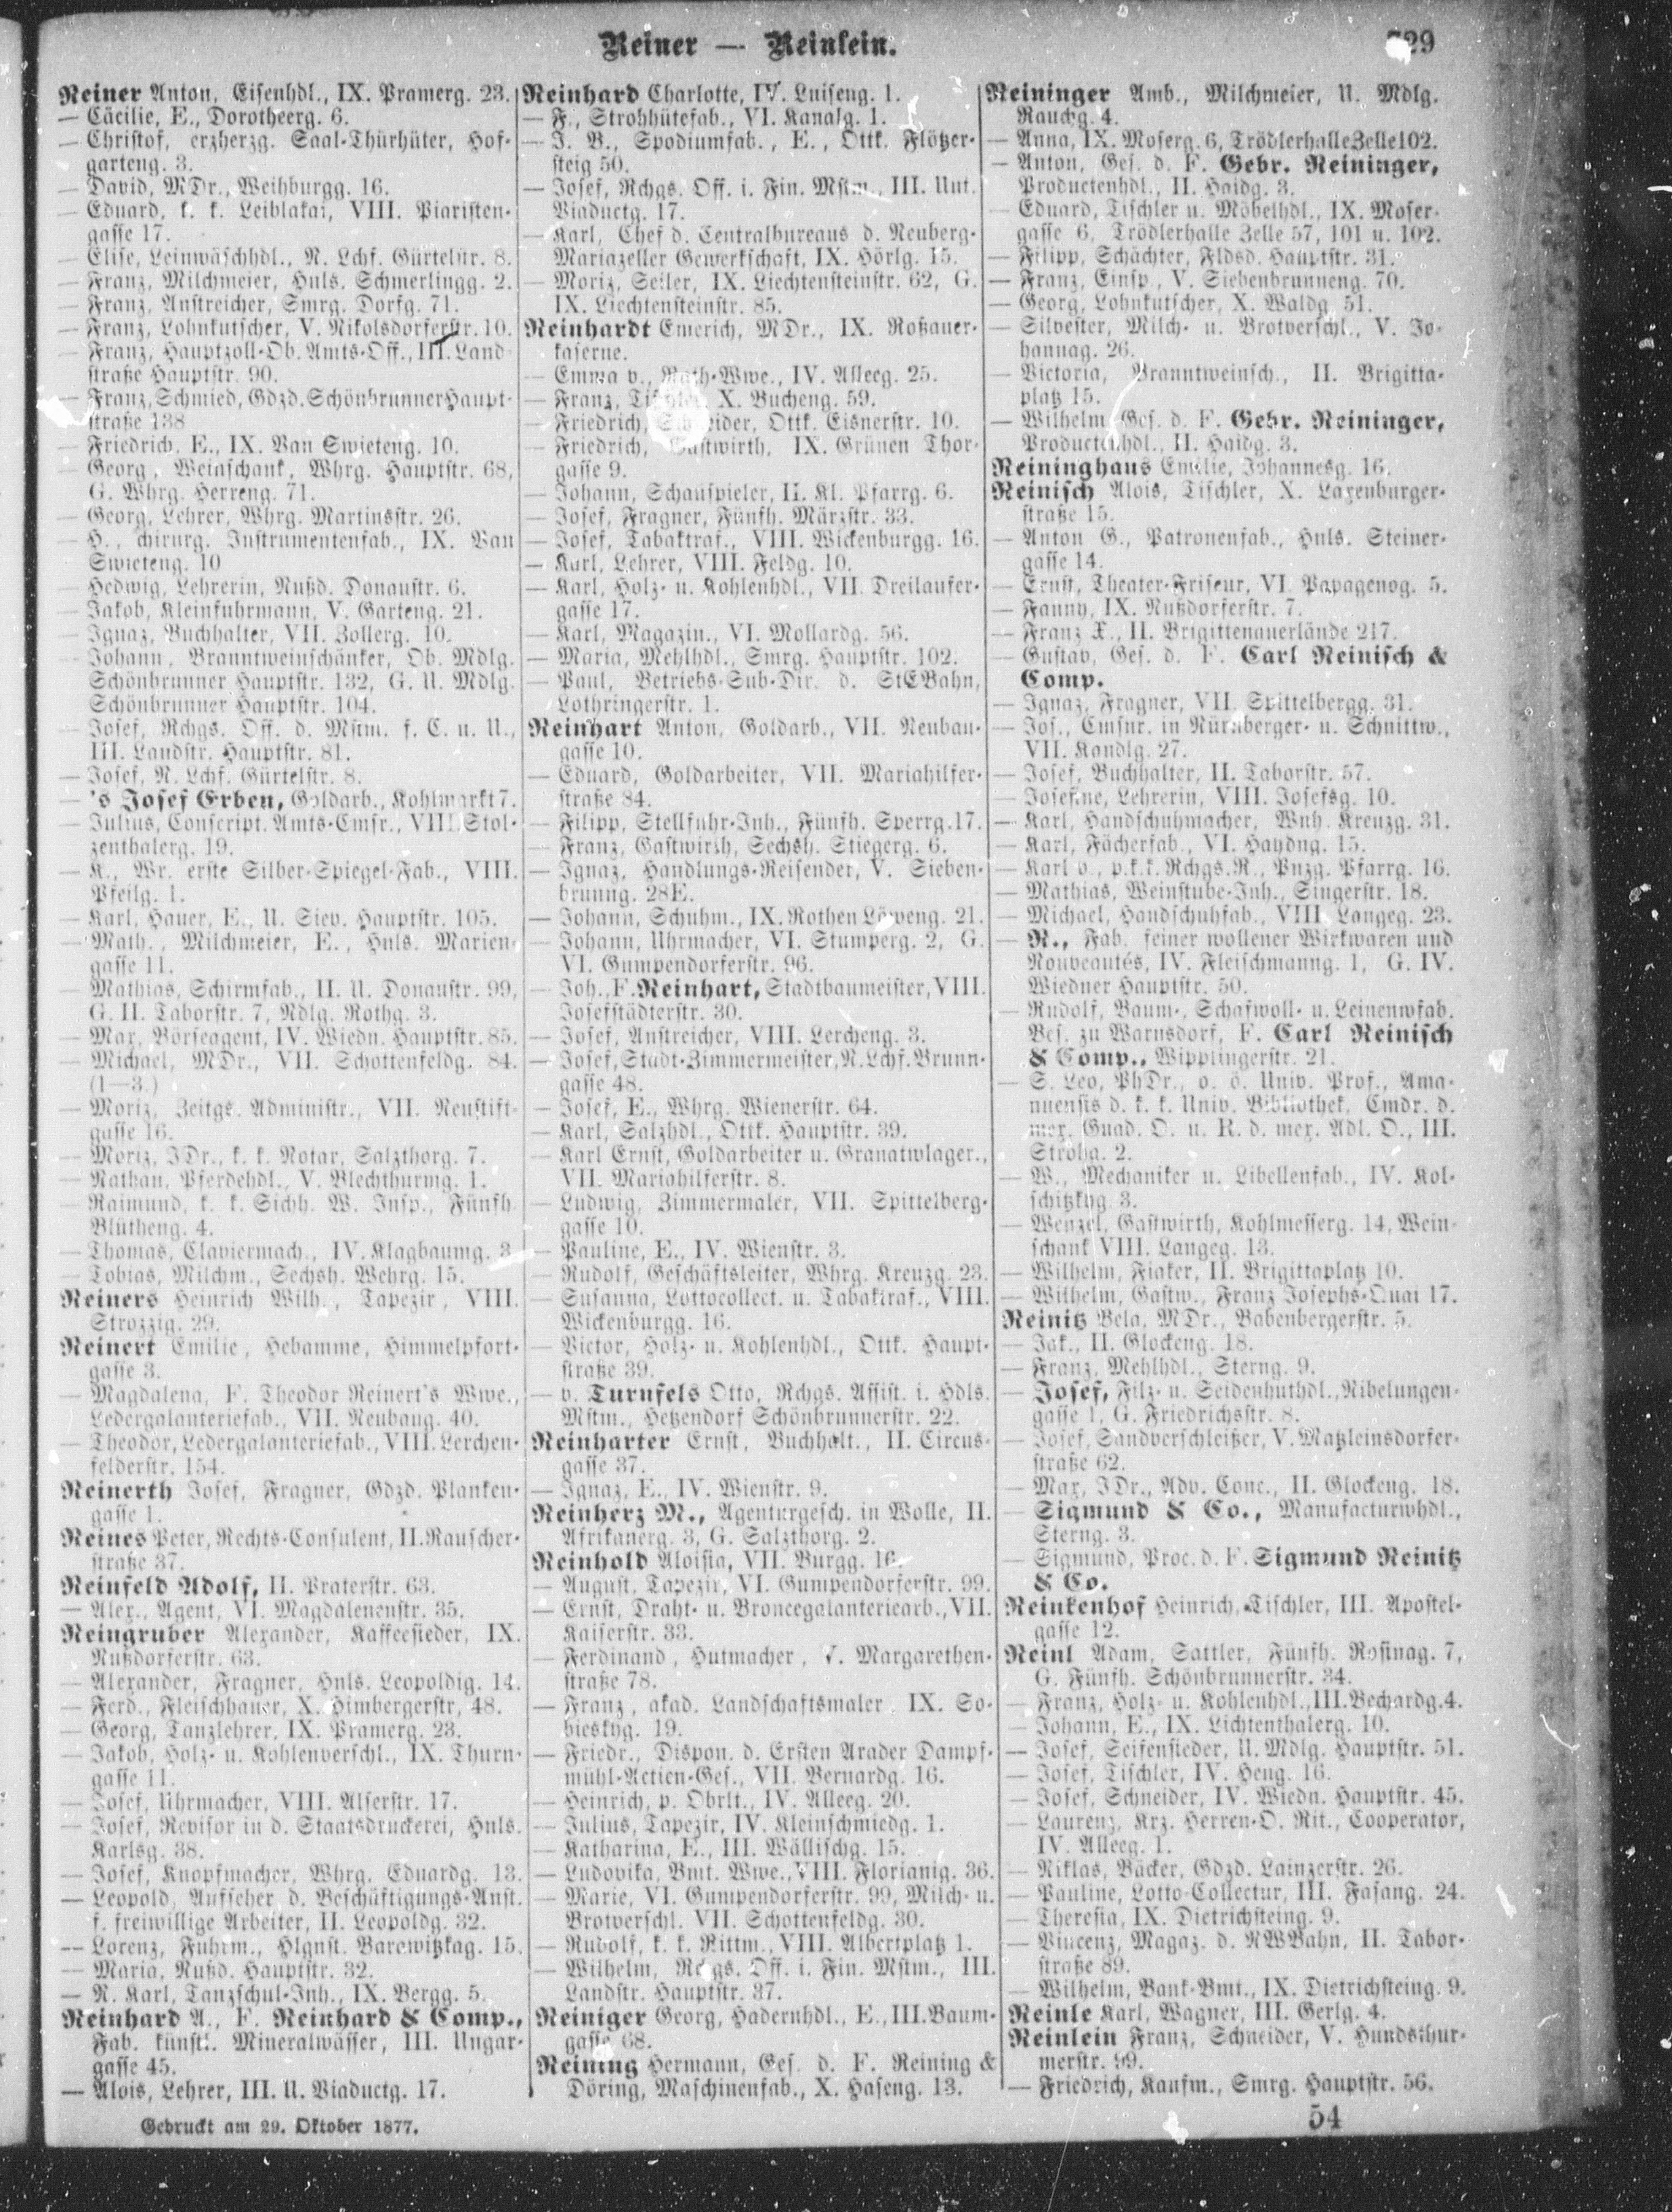 Reiner — Reinlein.
Reiner Anton, Eisenhdl., IX. Pramerg. 23.
— Cäcilie, E., Dorotheerg. 6.
— Christof, erzherzg. Saal-Thürhüter, Hof-
garteng. 3.
— David, MDr., Weihburgg. 16.
— Eduard, k. k. Leiblakai, VIII. Piaristen-
gasse 17.
— Elise, Leinwäschhdl., N. Lchf. Gürtelstr. 8.
— Franz, Milchmeier, Hnls. Schmerlingg. 2.
— Franz, Anstreicher, Smrg. Dorfg. 71.
— Franz, Lohnkutscher, V. Nikolsdorferstr. 10.
— Franz, Hauptzoll-Ob. Amts-Off., III. Land-
straße Hauptstr. 90.
— Franz, Schmied, Gdzd. Schönbrunner Haupt-
straße 138
— Friedrich, E., IX. Van Swieteng. 10.
— Georg, Weinschank, Whrg. Hauptstr. 68,
G. Whrg. Herreng. 71.
— Georg, Lehrer, Whrg. Martinsstr. 26.
— H., chirurg. Instrumentenfab., IX. Van
Swieteng. 10
— Hedwig, Lehrerin, Nußd. Donaustr. 6.
— Jakob, Kleinfuhrmann, V. Garteng. 21.
— Ignaz, Buchhalter, VII. Zollerg. 10.
— Johann, Branntweinschänker, Ob. Mdlg.
Schönbrunner Hauptstr. 132, G. U. Mdlg.
Schönbrunner Hauptstr. 104.
— Josef, Rchgs. Off. d. Mstm. f. C. u. U.,
III. Landstr. Hauptstr. 81.
— Josef, N. Lchf. Gürtelstr. 8.
— 's Josef Erben, Goldarb., Kohlmarkt 7.
— Julius, Conscript. Amts-Cmsr., VIII. Stol-
zenthalerg. 19.
— K., Wr. erste Silber-Spiegel-Fab., VIII.
Pfeilg. 1.
— Karl, Hauer, E., U. Siev. Hauptstr. 105.
— Math., Milchmeier, E., Hnls. Marien-
gasse 11.
— Mathias, Schirmfab., II. U. Donaustr. 99,
G. II. Taborstr. 7, Rdlg. Rothg. 3.
— Max, Börseagent, IV. Wiedn. Hauptstr. 85.
— Michael, MDr., VII. Schottenfeldg. 84.
(1—3.)
— Moriz, Zeitgs. Administr., VII. Neustift-
gasse 16.
— Moriz, JDr., k. k. Notar, Salzthorg. 7.
— Nathan, Pferdehdl., V. Blechthurmg. 1.
— Raimund, k. k. Sichh. W. Insp., Fünfh.
Blütheng. 4.
— Thomas, Claviermach., IV. Klagbaumg. 3
— Tobias, Milchm., Sechsh. Wehrg. 15.
Reiners Heinrich Wilh., Tapezir, VIII.
Strozzig. 29.
Reinert Emilie, Hebamme, Himmelpfort-
gasse 3.
— Magdalena, F. Theodor Reinert's Wwe.,
Ledergalanteriefab., VII. Neubaug. 40.
— Theodor, Ledergalanteriefab., VIII. Lerchen-
felderstr. 154.
Reinerth Josef, Fragner, Gdzd. Planken-
gasse 1.
Reines Peter, Rechts-Consulent, II. Rauscher-
straße 37.
Reinfeld Adolf, II. Praterstr. 63.
— Alex., Agent, VI. Magdalenenstr. 35.
Reingruber Alexander, Kaffeesieder, IX.
Nußdorferstr. 63.
— Alexander, Fragner, Hnls. Leopoldig. 14.
— Ferd., Fleischhauer, X. Himbergerstr, 48.
— Georg, Tanzlehrer, IX. Pramerg. 23.
— Jakob, Holz- u. Kohlenverschl., IX. Thurn-
gasse 11.
— Josef, Uhrmacher, VIII. Alserstr. 17.
— Josef, Revisor in d. Staatsdruckerei, Hnls.
Karlsg. 38.
— Josef, Knopfmacher, Whrg. Eduardg. 13.
— Leopold, Aufseher d. Beschäftigungs-Anst.
f. freiwillige Arbeiter, II. Leopoldg. 32.
— Lorenz, Fuhrm., Hlgnst. Barawitzkag. 15.
— Maria, Nußd. Hauptstr. 32.
— R. Karl, Tanzschul-Inh., IX. Bergg. 5.
Reinhard A., F. Reinhard & Comp.,
Fab. künstl. Mineralwässer, III. Ungar-
gasse 45.
— Alois, Lehrer, III. U. Viaductg. 17.
Gedruckt am 29. Oktober 1877.
Reinhard Charlotte, IV. Luiseng. 1.
— F., Strohhütefab., VI. Kanalg. 1.
— J. B., Spodiumfab., E., Ottk. Flötzer-
steig 50.
— Josef, Rchgs. Off. i. Fin. Mstm., III. Unt.
Viaductg. 17.
— Karl, Chef d. Centralbureaus d. Neuberg-
Mariazeller Gewerkschaft, IX. Hörlg. 15.
— Moriz, Seiler, IX. Liechtensteinstr. 62, G.
IX. Liechtensteinstr. 85.
Reinhardt Emerich, MDr., IX. Roßauer-
kaserne.
— Emma v., Rath-Wwe., IV. Alleeg. 25.
— Franz, Tischler, X. Bucheng. 59.
— Friedrich, Schneider, Ottk. Eisnerstr. 10.
— Friedrich, Gastwirth, IX. Grünen Thor-
gasse 9.
— Johann, Schauspieler, II. Kl. Pfarrg. 6.
— Josef, Fragner, Fünfh. Märzstr. 33.
— Josef, Tabaktraf., VIII. Wickenburgg. 16.
— Karl, Lehrer, VIII. Feldg. 10.
— Karl, Holz- u. Kohlenhdl., VII. Dreilaufer-
gasse 17.
— Karl, Magazin., VI. Mollardg. 56.
— Maria, Mehlhdl., Smrg. Hauptstr. 102.
— Paul, Betriebs-Sub-Dir. d. StEBahn,
Lothringerstr. 1.
Reinhart Anton, Goldarb., VII. Neubau-
gasse 10.
— Eduard, Goldarbeiter, VII. Mariahilfer-
straße 84.
— Filipp, Stellfuhr-Inh., Fünfh. Sperrg. 17.
— Franz, Gastwirth, Sechsh. Stiegerg. 6.
— Ignaz, Handlungs-Reisender, V. Sieben-
brunng. 28E.
— Johann, Schuhm., IX. Rothen Löweng. 21.
— Johann, Uhrmacher, VI. Stumperg. 2, G.
VI. Gumpendorferstr. 96.
— Joh., F. Reinhart, Stadtbaumeister, VIII.
Josefstädterstr. 30.
— Josef, Anstreicher, VIII. Lercheng. 3.
— Josef, Stadt-Zimmermeister, N. Lchf. Brunn-
gasse 48.
— Josef, E., Whrg. Wienerstr. 64.
— Karl, Salzhdl., Ottk. Hauptstr. 39.
— Karl Ernst, Goldarbeiter u. Granatwlager.,
VII. Mariahilferstr. 8.
— Ludwig, Zimmermaler, VII. Spittelberg-
gasse 10.
— Pauline, E., IV. Wienstr. 3.
— Rudolf, Geschäftsleiter, Whrg. Kreuzg. 23.
— Susanna, Lottocollect. u. Tabaktraf., VIII.
Wickenburgg. 16.
— Victor, Holz- u. Kohlenhdl., Ottk. Haupt-
straße 39.
— v. Turnfels Otto, Rchgs. Assist. i. Hdls.
Mstm., Hetzendorf Schönbrunnerstr. 22.
Reinharter Ernst, Buchhalt., II. Circus-
gasse 37.
— Ignaz, E., IV. Wienstr. 9.
Reinherz M., Agenturgesch. in Wolle, II.
Afrikanerg. 3, G. Salzthorg. 2.
Reinhold Aloisia, VII. Burgg. 16.
— August, Tapezir, VI. Gumpendorferstr. 99.
— Ernst, Draht- u. Broncegalanteriearb., VII.
Kaiserstr. 33.
— Ferdinand, Hutmacher, V. Margarethen-
straße 78.
— Franz, akad. Landschaftsmaler, IX. So-
bieskyg. 19.
— Friedr., Dispon. d. Ersten Arader Dampf-
mühl-Actien-Ges., VII. Bernardg. 16.
— Heinrich, p. Obrlt., IV. Alleeg. 20.
— Julius, Tapezir, IV. Kleinschmiedg. 1.
— Katharina, E., III. Wällischg. 15.
— Ludovika, Bmt. Wwe., VIII. Florianig. 36.
— Marie, VI. Gumpendorferstr. 99, Milch- u.
Brotverschl. VII. Schottenfeldg. 30.
— Rudolf, k. k. Rittm., VIII. Albertplatz 1.
— Wilhelm, Rchgs. Off. i. Fin. Mstm., III.
Landstr. Hauptstr. 37.
Reiniger Georg, Hadernhdl., E., III. Baum-
gasse 68.
Reining Hermann, Ges. d. F. Reining &
Döring, Maschinenfab., X. Haseng. 13.
Reininger Amb., Milchmeier, U. Mdlg.
Rauchg. 4.
— Anna, IX. Moserg. 6, Trödlerhalle Zelle 102.
— Anton, Ges. d. F. Gebr. Reininger,
Productenhdl., II. Haidg. 3.
— Eduard, Tischler u. Möbelhdl., IX. Moser-
gasse 6, Trödlerhalle Zelle 57, 101 u. 102.
— Filipp, Schächter, Fldsd. Hauptstr. 31.
— Franz, Einsp., V. Siebenbrunneng. 70.
— Georg, Lohnkutscher, X. Waldg. 51.
— Silvester, Milch- u. Brotverschl., V. Jo-
hannag. 26.
— Victoria, Branntweinsch., II. Brigitta-
platz 15.
— Wilhelm Ges. d. F. Gebr. Reininger,
Productenhdl., II. Haidg. 3.
Reininghaus Emilie, Johannesg. 16.
Reinisch Alois, Tischler, X. Laxenburger-
straße 15.
— Anton G., Patronenfab., Hnls. Steiner-
gasse 14.
— Ernst, Theater-Friseur, VI. Papagenog. 5.
— Fanny, IX. Nußdorferstr. 7.
— Franz X., II. Brigittenauerlände 217.
— Gustav, Ges. d. F. Carl Reinisch &
Comp.
— Ignaz, Fragner, VII. Spittelbergg. 31.
— Jos., Cmsnr. in Nürnberger- u. Schnittw.,
VII. Kandlg. 27.
— Josef, Buchhalter, II. Taborstr. 57.
— Josefine, Lehrerin, VIII. Josefsg. 10.
— Karl, Handschuhmacher, Wnh. Kreuzg. 31.
— Karl, Fächerfab., VI. Haydng. 15.
— Karl v., p. k. k. Rchgs. R., Pnzg. Pfarrg. 16.
— Mathias, Weinstube-Inh., Singerstr. 18.
— Michael, Handschuhfab., VIII. Langeg. 23.
— R., Fab. feiner wollener Wirkwaren und
Nouveautés, IV. Fleischmanng. 1, G. IV.
Wiedner Hauptstr. 50.
— Rudolf, Baum-, Schafwoll- u. Leinenwfab.
Bes. zu Warnsdorf, F. Carl Reinisch
& Comp., Wipplingerstr. 21.
— S. Leo, PhDr., o. ö. Univ. Prof., Ama-
nuensis d. k. k. Univ. Bibliothek, Cmdr. d.
mex. Guad. O. u. R. d. mex. Adl. O., III.
Strohg. 2.
— W., Mechaniker u. Libellenfab., IV. Kol-
schitzkyg. 3.
— Wenzel, Gastwirth, Kohlmesserg. 14, Wein-
schank VIII. Langeg. 13.
— Wilhelm, Fiaker, II. Brigittaplatz 10.
— Wilhelm, Gastw., Franz Josephs-Quai 17.
Reinitz Bela, MDr., Babenbergerstr. 5.
— Jak., II. Glockeng. 18.
— Franz, Mehlhdl., Sterng. 9.
— Josef, Filz- u. Seidenhuthdl., Nibelungen-
gasse 1, G. Friedrichsstr. 8.
— Josef, Sandverschleißer, V. Matzleinsdorfer-
straße 62.
— Max, JDr., Adv. Conc., II. Glockeng. 18.
— Sigmund & Co., Manufacturwhdl.,
Sterng. 3.
— Sigmund, Proc. d. F. Sigmund Reinitz
& Co.
Reinkenhof Heinrich, Tischler, III. Apostel-
gasse 12.
Reinl Adam, Sattler, Fünfh. Rosinag. 7,
G. Fünfh. Schönbrunnerstr. 34.
— Franz, Holz- u. Kohlenhdl., III. Bechardg. 4.
— Johann, E., IX. Lichtenthalerg. 10.
— Josef, Seifensieder, U. Mdlg. Hauptstr. 51.
— Josef, Tischler, IV. Heug. 16.
— Josef, Schneider, IV. Wiedn. Hauptstr. 45.
— Laurenz, Krz. Herren-O. Rit., Cooperator,
IV. Alleeg. 1.
— Niklas, Bäcker, Gdzd. Lainzerstr. 26.
— Pauline, Lotto-Collectur, III. Fasang. 24.
— Theresia, IX. Dietrichsteing. 9.
— Vincenz, Magaz. d. NWBahn, II. Tabor-
straße 89.
— Wilhelm, Bank-Bmt., IX. Dietrichsteing. 9.
Reinle Karl, Wagner, III. Gerlg. 4.
Reinlein Franz, Schneider, V. Hundsthur-
merstr. 99.
— Friedrich, Kaufm., Smrg. Hauptstr. 56.
54